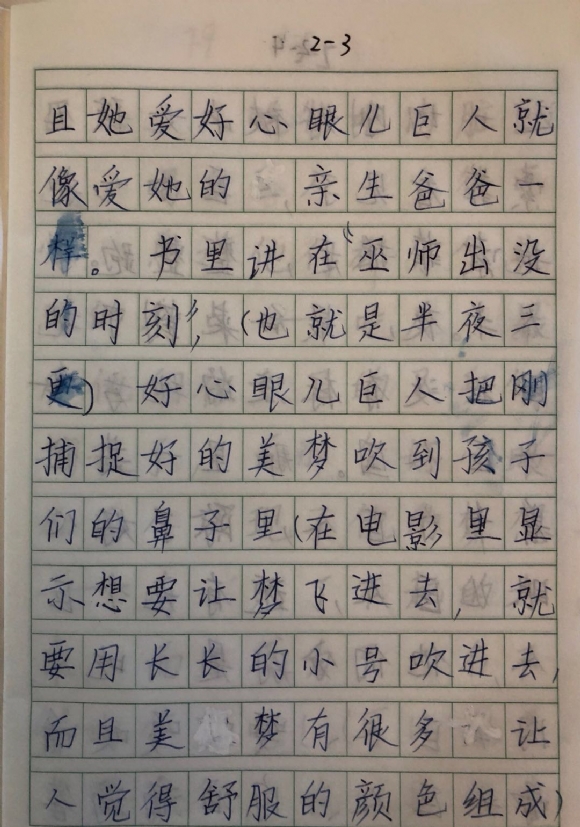 2-3
且她爱好心眼儿巨人就
像爱她的亲生爸爸一
样。书里讲在“巫师出没
的时刻”,(也就是半夜三
更)好心眼儿巨人把刚
捕捉好的美梦吹到孩子
们的鼻子里(在电影里显
示想要让梦飞进去,就
要用长长的小号吹进去,
而且美梦有很多让
人觉得舒服的颜色组成)